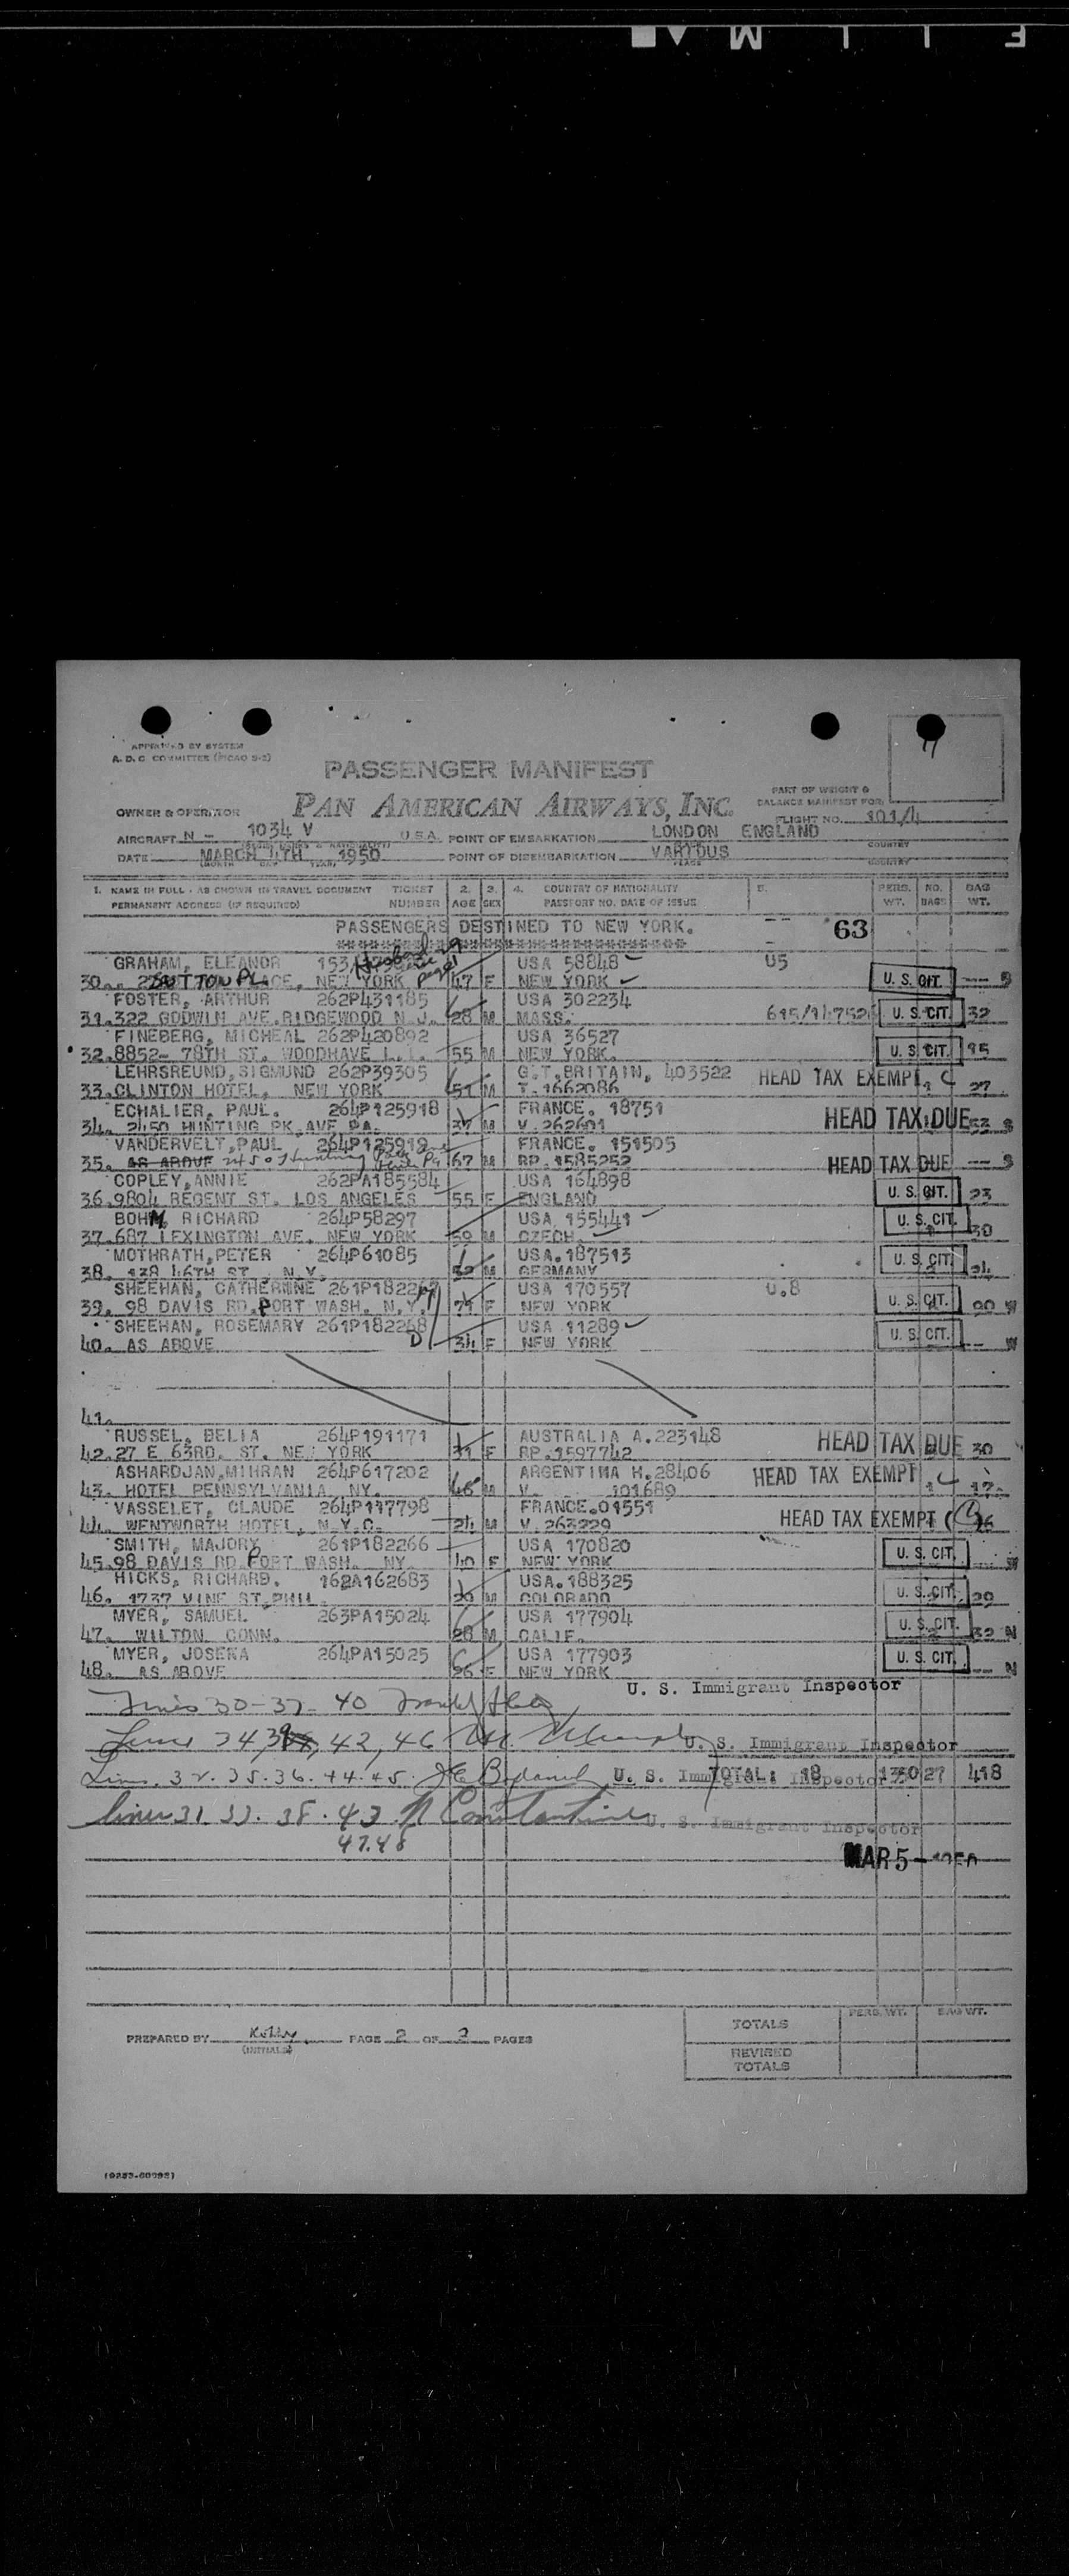 FILM
APPROVED BY SYSTEM
A. D. C. COMMITTEE (PICAO 9-2)
PASSENGER MANIFEST
PAN AMERICAN AIRWAYS, INC.
PART OF WEIGHT &
BALANCE MANIFEST FOR:
OWNER & OPERATOR
FLIGHT NO. 101/4
AIRCRAFT N - 1034 V U.S.A. POINT OF EMBARKATION LONDON ENGLAND
COUNTRY
DATE MARCH 4TH 1950 POINT OF DISEMBARKATION VARIOUS
PLACE COUNTRY
1. NAME IN FULL - AS SHOWN IN TRAVEL DOCUMENT TICKET 2. 3. 4. COUNTRY OF NATIONALITY 5. PERS. NO. BAG
PERMANENT ADDRESS (IF REQUIRED) NUMBER AGE SEX PASSPORT NO. DATE OF ISSUE WT. BAGS WT.
PASSENGERS DESTINED TO NEW YORK. 63
GRAHAM, ELEANOR USA 58848 U5
30. SUTTON PLACE, NEW YORK page 1 47 F NEW YORK U. S. CIT.
FOSTER, ARTHUR 262P431185 USA 302234
31. 322 GODWIN AVE. RIDGEWOOD N.J. 28 M MASS. U. S. CIT. 32
FINEBERG, MICHEAL 262P420892 USA 36527
32. 8852- 78TH ST. WOODHAVE L.I. 55 M NEW YORK. U. S. CIT.
LEHRSREUND, SIGMUND 262P39305 G.T. BRITAIN, 403522 HEAD TAX EXEMPT C
33. CLINTON HOTEL, NEW YORK 51 M T.1662086 27
ECHALIER, PAUL. 264P125918 FRANCE. 18751 HEAD TAX DUE
34. 2450 HUNTING PK. AVE PA. 37 M V.262601
VANDERVELT, PAUL 264P125919 FRANCE. 151505
35. AS ABOVE 67 M RP.1585252 HEAD TAX DUE
COPLEY, ANNIE 262PA185584 USA 164898
36. 9804 REGENT ST. LOS ANGELES 55 F ENGLAND U. S. CIT. 23
BOHM, RICHARD 264P58297 USA 155441
37. 687 LEXINGTON AVE. NEW YORK 59 M CZECH. U. S. CIT. 30
MOTHRATH, PETER 264P61085 USA. 187513
38. 138 46TH ST. N.Y. M GERMANY U. S. CIT.
SHEEHAN, CATHERINE 261P182267 USA 170557 U.8
39. 98 DAVIS RD. PORT WASH. N.Y. 71 F NEW YORK U. S. CIT. 90 W
SHEEHAN, ROSEMARY 261P182268 USA 11289
40. AS ABOVE 34 F NEW YORK U. S. CIT. W
41.
RUSSEL, DELIA 264P191171 AUSTRALIA A.223148 HEAD TAX DUE
42. 27 E 63RD. ST. NEW YORK 71 F RP.1597742 30
ASHARDJAN, MIHRAN 264P617202 ARGENTINA H.28406 HEAD TAX EXEMPT
43. HOTEL PENNSYLVANIA. NY. M V. 101689 17
VASSELET, CLAUDE 264P117798 FRANCE. 01551
44. WENTWORTH HOTEL, N.Y.C. 24 M V.263229 HEAD TAX EXEMPT
SMITH, MAJORY 261P182266 USA 170820
45. 98 DAVIS RD PORT WASH. NY 40 F NEW YORK U. S. CIT.
HICKS, RICHARD. 162A162683 USA. 188325
46. 1737 VINE ST. PHIL. 29 M COLORADO U. S. CIT. 29
MYER, SAMUEL 263PA15024 USA 177904
47. WILTON CONN. 28 M CALIF. U. S. CIT. 32 N
MYER, JOSEKA 264PA15025 USA 177903
48. AS ABOVE 26 F NEW YORK U. S. CIT. N
Lines 30-37- 40 U. S. Immigrant Inspector
42, 46 U. S. Immigrant Inspector
Lines. 32. 35. 36. 44. 45. U. S. Immigrant Inspector TOTAL: 18 27 418
Lines 31. 33. 38. 43 Constantine U. S. Immigrant Inspector
47.48
MAR 5 - 1950
TOTALS PERS. WT. BAG WT.
PREPARED BY Kelly. PAGE 2 OF 3 PAGES
(INITIALS)
REVISED
TOTALS